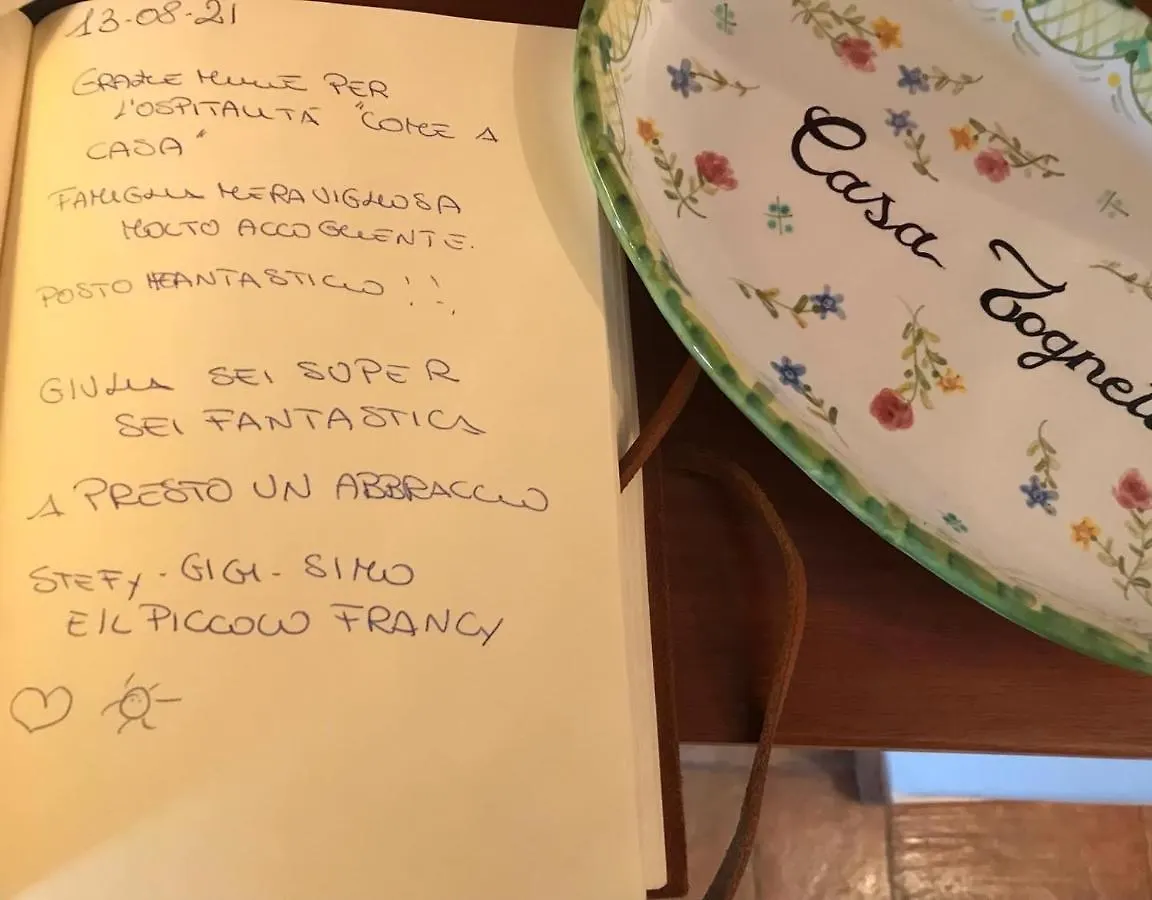 13-08-21
GRAZIE MILLE PER
L'OSPITALITÀ "COME A
CASA"
FAMIGLIA MERAVIGLIOSA
MOLTO ACCOGLIENTE.
POSTO FANTASTICO !!
GIULIA SEI SUPER
SEI FANTASTICA
A PRESTO UN ABBRACCIO
STEFY - GIGI - SIMO
E IL PICCOLO FRANCY
Casa